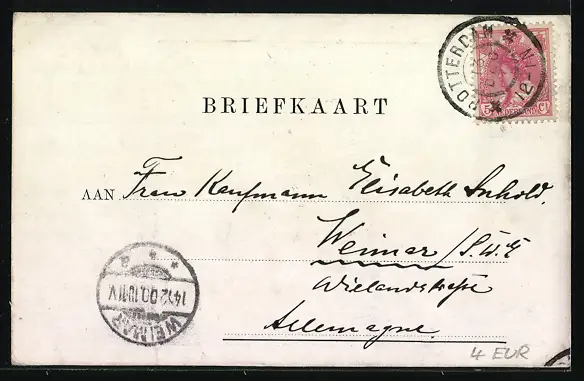 ROTTERDAM 12-1N
5 CT
NEDERLAND
BRIEFKAART
AAN Frau Kaufmann Elisabeth
Weimar / S. W. E
Wielandstrasse
Allemagne.
WEIMAR 14.12.00.10-11V.
4 EUR